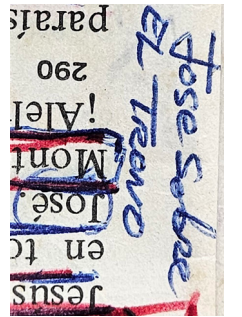 Jesús
en to
José.
Mont
¡Alel
290
paraís
Jose Sobre
EL Trono